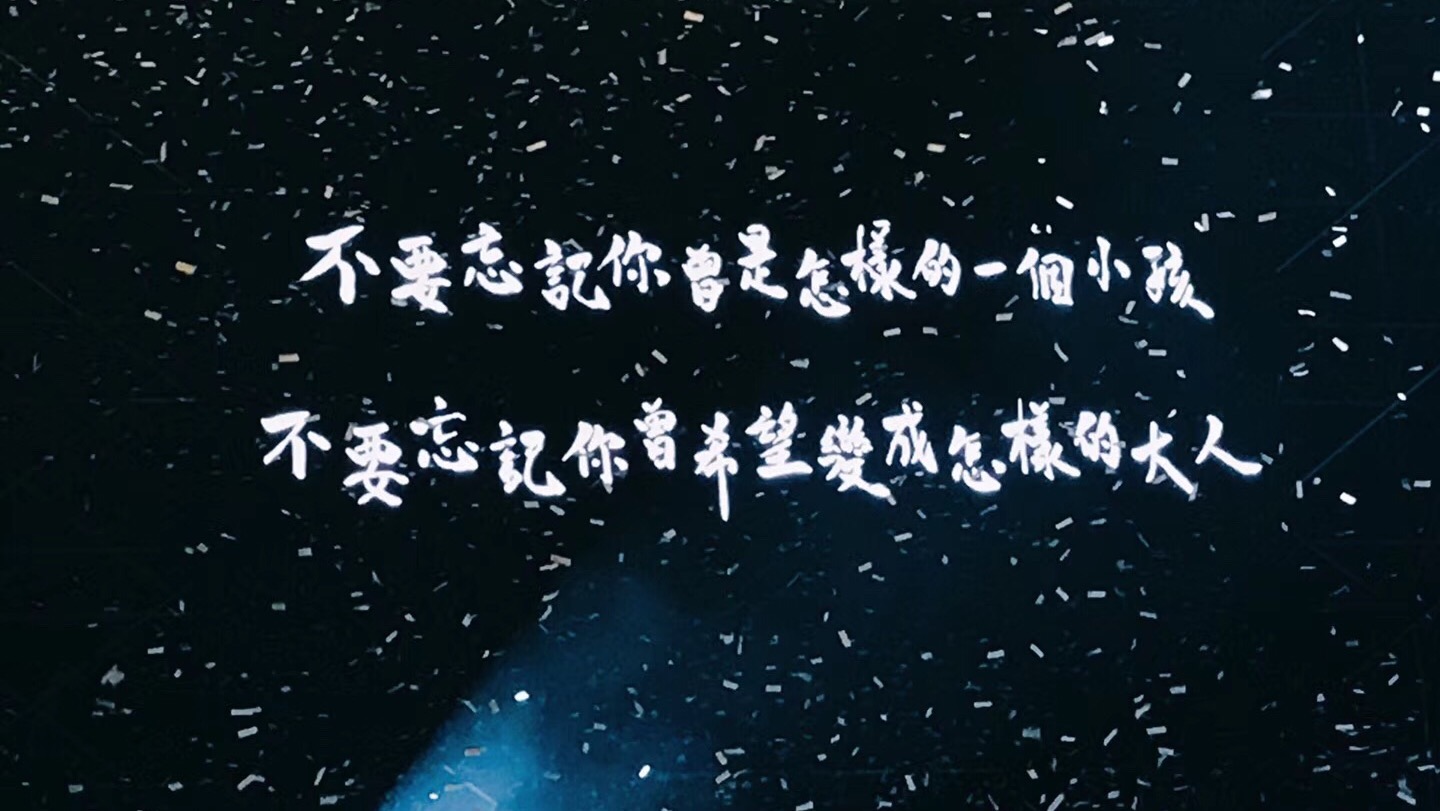 不要忘記你曾是怎樣的一個小孩
不要忘記你曾希望變成怎樣的大人